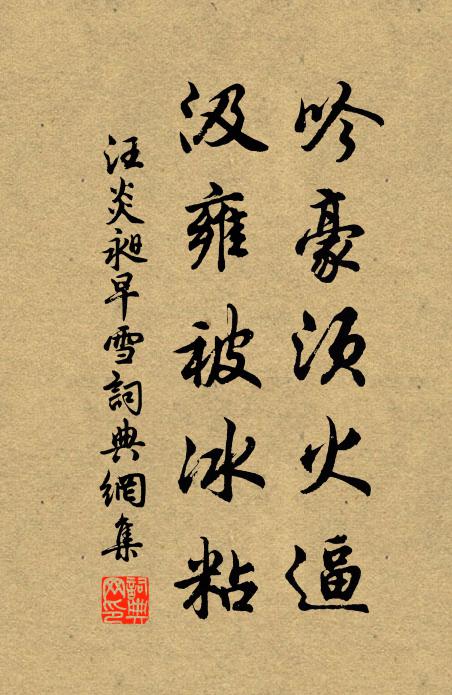 吟豪須火逼
汲雍被冰粘
汪炎昶早雪詞典網集
詞典網印